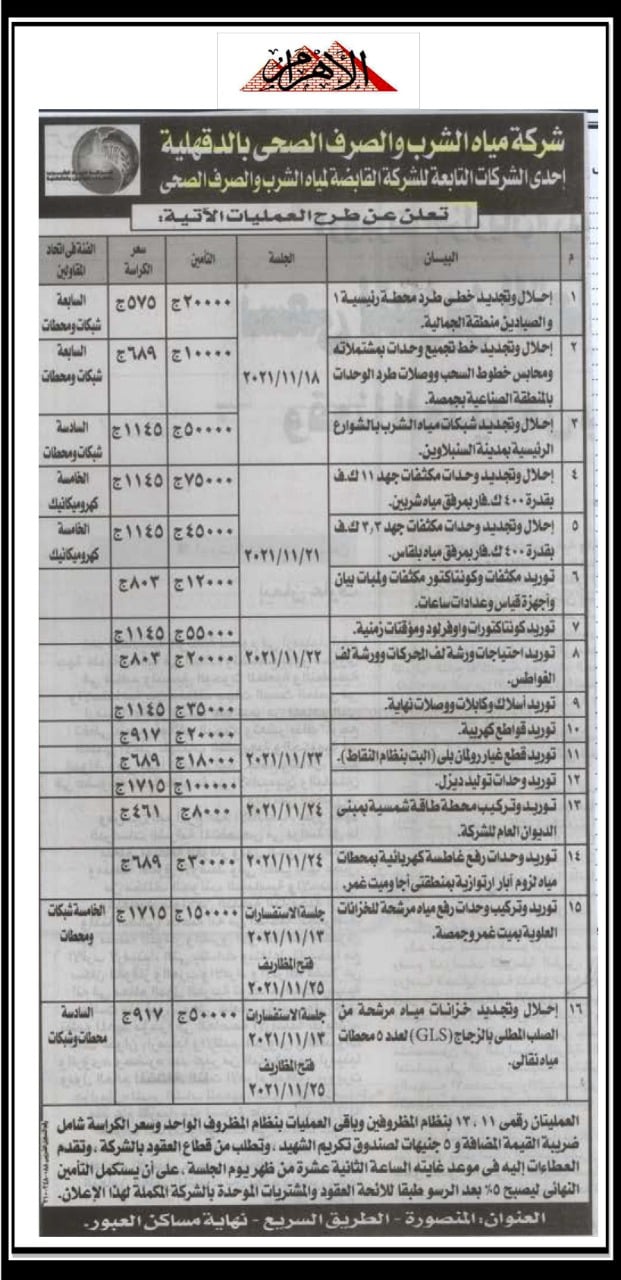 الأهرام
شركة مياه الشرب والصرف الصحى بالدقهلية
إحدى الشركات التابعة للشركة القابضة لمياه الشرب والصرف الصحى
تعلن عن طرح العمليات الآتية:
م البيــــان الجلسة التأمين سعر الكراسة الفئة فى اتحاد المقاولين
١ إحلال وتجديد خطى طرد محطة رئيسية ١ ٢٠٠٠٠ج ٥٧٥ج السابعة
والصيادين منطقة الجمالية. شبكات ومحطات
٢ إحلال وتجديد خط تجميع وحدات بمشتملاته ١٠٠٠٠ج ٦٨٩ج السابعة
ومحابس خطوط السحب ووصلات طرد الوحدات ٢٠٢١/١١/١٨ شبكات ومحطات
بالمنطقة الصناعية بجمصة.
٣ إحلال وتجديد شبكات مياه الشرب بالشوارع ٥٠٠٠٠ج ١١٤٥ج السادسة
الرئيسية بمدينة السنبلاوين. شبكات ومحطات
٤ إحلال وتجديد وحدات مكثفات جهد ١١ ك.ف ٧٥٠٠٠ج ١١٤٥ج الخامسة
بقدرة ٤٠٠ ك.فار بمرفق مياه شربين. كهروميكانيك
٥ إحلال وتجديد وحدات مكثفات جهد ٣,٣ ك.ف ٤٥٠٠٠ج ١١٤٥ج الخامسة
بقدرة ٤٠٠ ك.فار بمرفق مياه بلقاس. ٢٠٢١/١١/٢١ كهروميكانيك
٦ توريد مكثفات وكونتاكتور مكثفات ولمبات بيان ١٢٠٠٠ج ٨٠٣ج
وأجهزة قياس وعدادات ساعات.
٧ توريد كونتاكتورات واوفرلود ومؤقتات زمنية. ٥٥٠٠٠ج ١١٤٥ج
٨ توريد احتياجات ورشة لف المحركات وورشة لف ٢٠٢١/١١/٢٢ ٢٠٠٠٠ج ٨٠٣ج
الغواطس.
٩ توريد أسلاك وكابلات ووصلات نهاية. ٣٥٠٠٠ج ١١٤٥ج
١٠ توريد قواطع كهربية. ٢٠٠٠٠ج ٩١٧ج
١١ توريد قطع غيار رولمان بلى (البت بنظام النقاط). ٢٠٢١/١١/٢٣ ١٨٠٠٠ج ٦٨٩ج
١٢ توريد وحدات توليد ديزل. ١٠٠٠٠٠ج ١٧١٥ج
١٣ توريد وتركيب محطة طاقة شمسية بمبنى ٢٠٢١/١١/٢٤ ٨٠٠٠ج ٤٦١ج
الديوان العام للشركة.
١٤ توريد وحدات رفع غاطسة كهربائية بمحطات ٢٠٢١/١١/٢٤ ٣٠٠٠٠ج ٦٨٩ج
مياه لزوم آبار ارتوازية بمنطقتى أجا وميت غمر.
١٥ توريد وتركيب وحدات رفع مياه مرشحة للخزانات جلسة الاستفسارات ١٥٠٠٠٠ج ١٧١٥ج الخامسة شبكات
العلوية بميت غمر وجمصة. ٢٠٢١/١١/١٣ ومحطات
فتح المظاريف
٢٠٢١/١١/٢٥
١٦ إحلال وتجديد خزانات مياه مرشحة من جلسة الاستفسارات ٥٠٠٠٠ج ٩١٧ج السادسة
الصلب المطلى بالزجاج (GLS) لعدد ٥ محطات ٢٠٢١/١١/١٣ محطات وشبكات
مياه نقالى. فتح المظاريف
٢٠٢١/١١/٢٥
العمليتان رقمى ١١ ، ١٣ بنظام المظروفين وباقى العمليات بنظام المظروف الواحد وسعر الكراسة شامل
ضريبة القيمة المضافة و ٥ جنيهات لصندوق تكريم الشهيد ، وتطلب من قطاع العقود بالشركة ، وتقدم
العطاءات إليه فى موعد غايته الساعة الثانية عشرة من ظهر يوم الجلسة ، على أن يستكمل التأمين
النهائى ليصبح ٥٪ بعد الرسو طبقا للائحة العقود والمشتريات الموحدة بالشركة المكملة لهذا الإعلان.
العنوان: المنصورة - الطريق السريع - نهاية مساكن العبور.